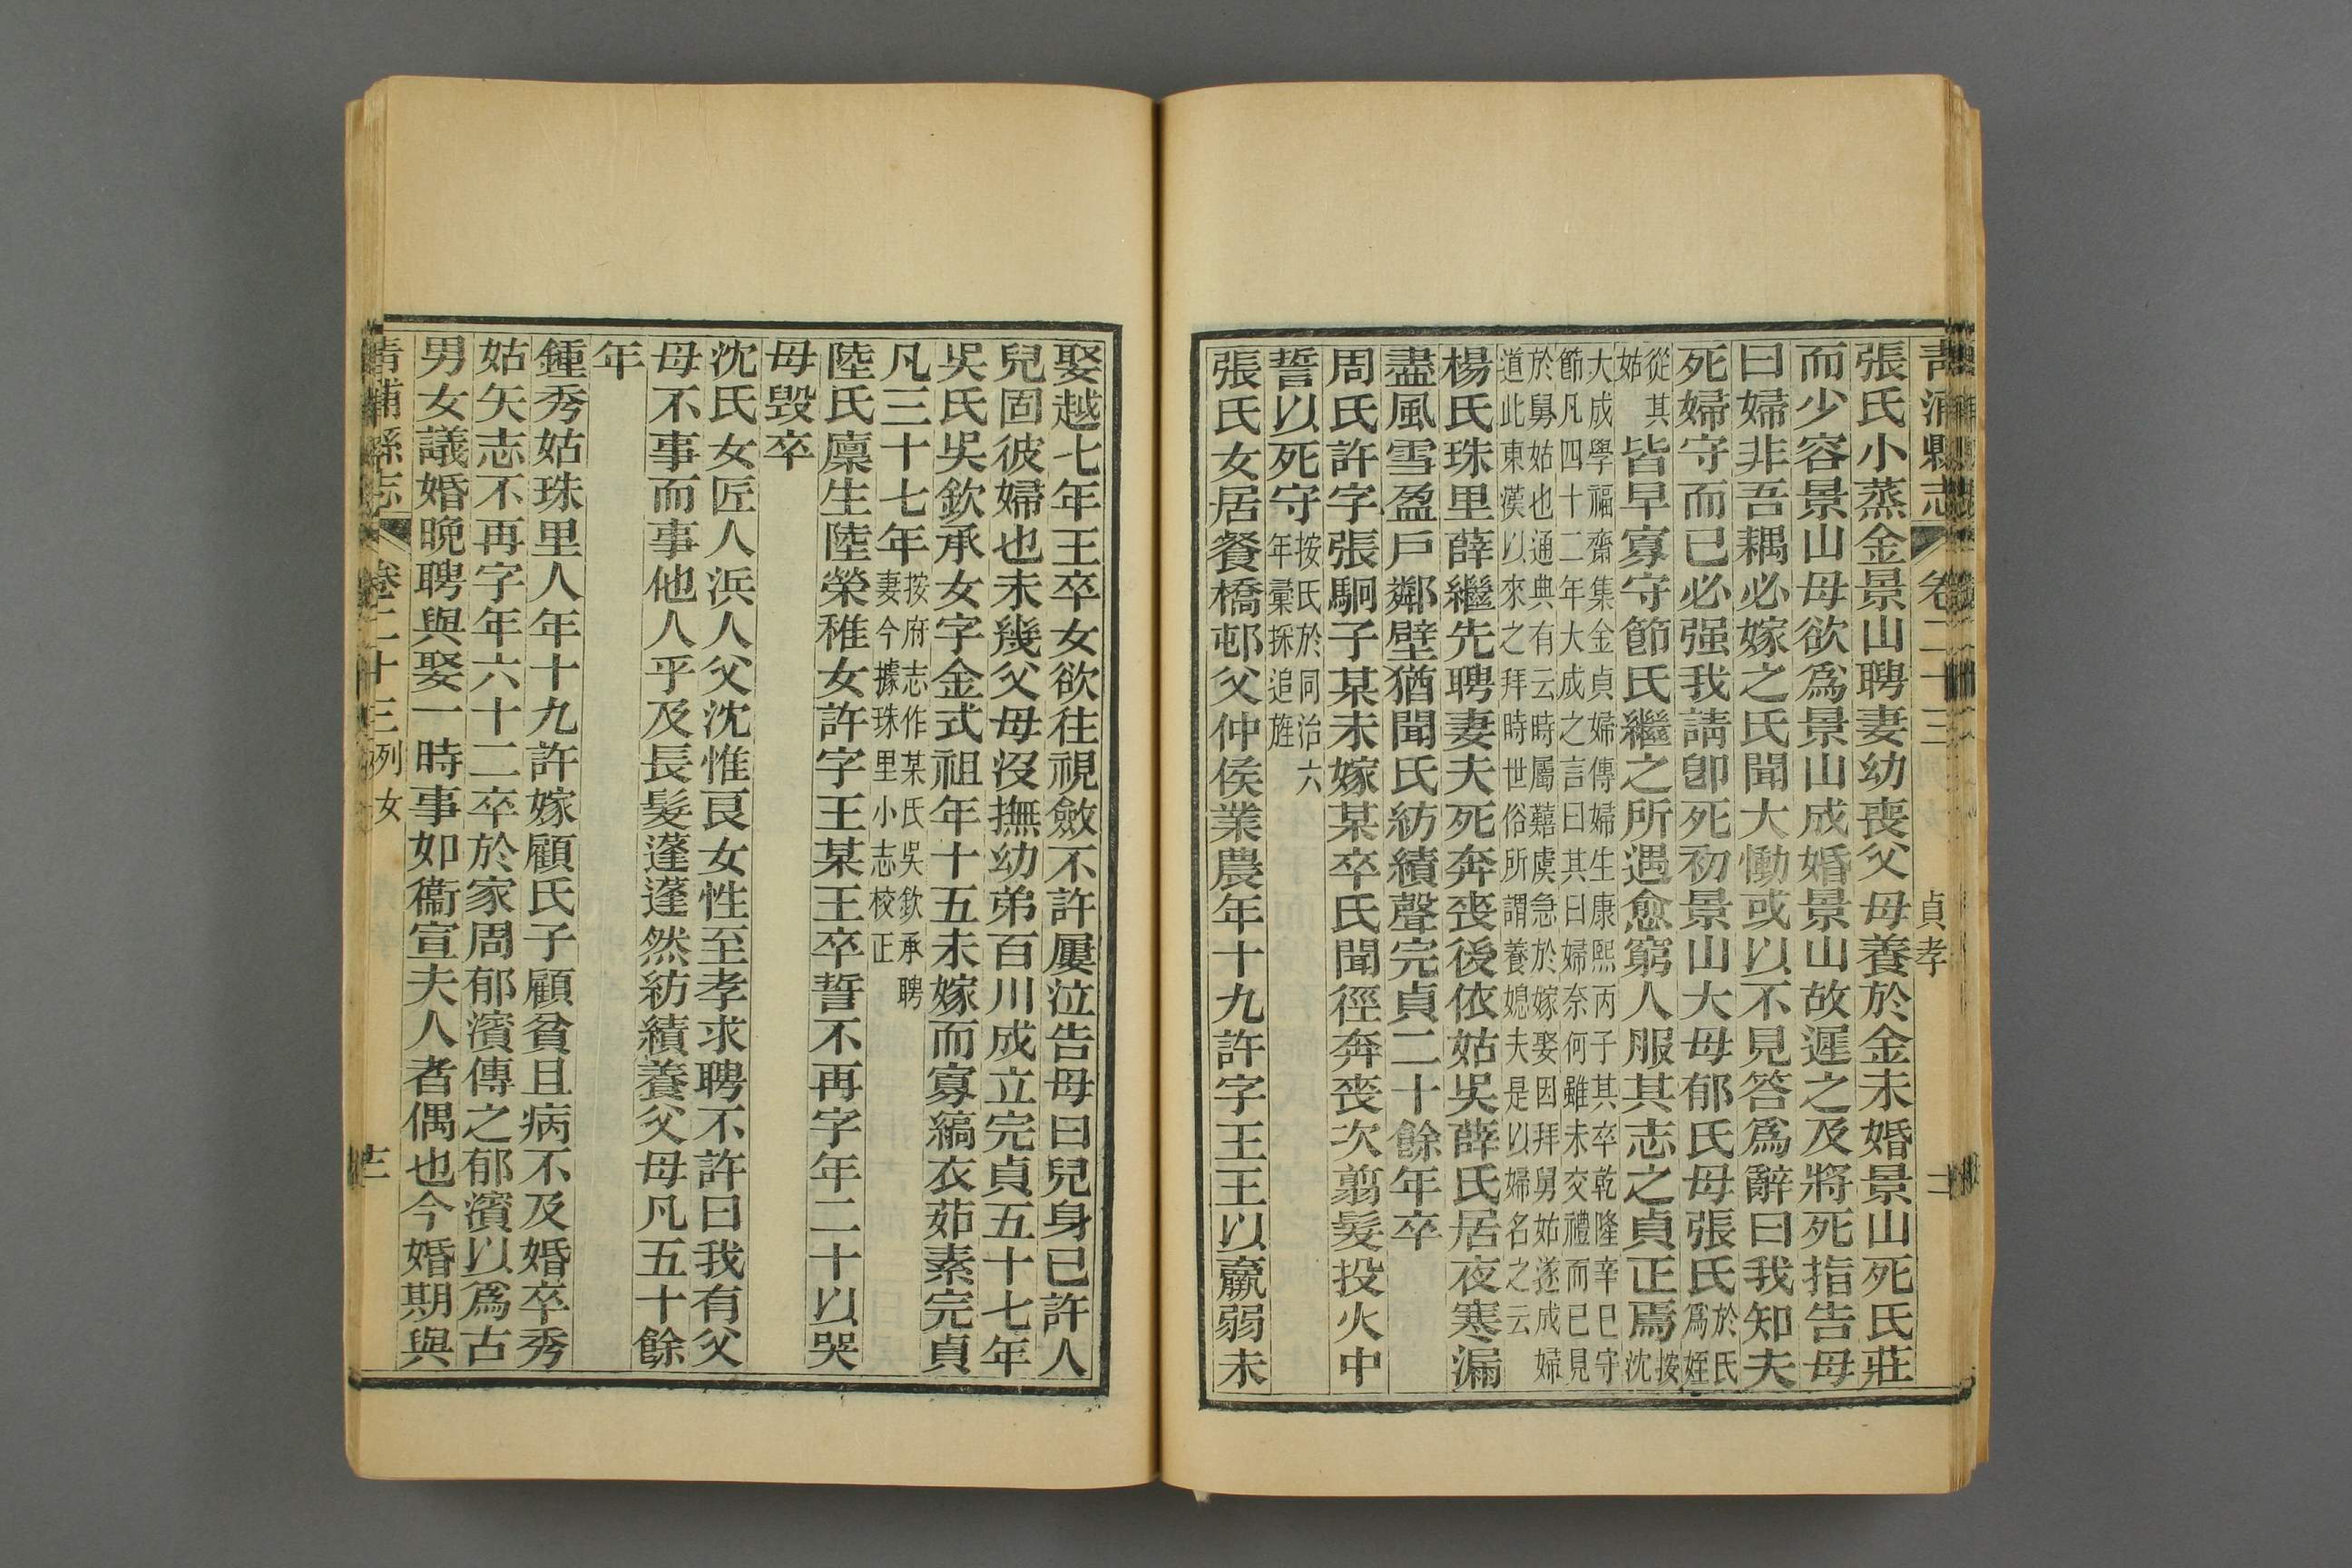 青浦縣志 卷二十三 貞孝 二
張氏小蒸金景山聘妻幼喪父母養於金未婚景山死氏莊
而少容景山母欲爲景山成婚景山故遲之及將死指告母
曰婦非吾耦必嫁之氏聞大慟或以不見答爲辭曰我知夫
死婦守而已必强我請卽死初景山大母郁氏母張氏於氏爲姪
從其姑皆早寡守節氏繼之所遇愈窮人服其志之貞正焉按沈
大成學福齋集金貞婦傳婦生康熙丙子其卒乾隆辛巳守
節凡四十二年大成之言曰其曰婦奈何雖未交禮而已見
於舅姑也通典有云時屬囏虞急於嫁娶因拜舅姑遂成婦
道此東漢以來之拜時世俗所謂養媳夫是以婦名之云
楊氏珠里薛繼先聘妻夫死奔喪後依姑吳薛氏居夜寒漏
盡風雪盈戶鄰壁猶聞氏紡績聲完貞二十餘年卒
周氏許字張駉子某未嫁某卒氏聞徑奔喪次翦髮投火中
誓以死守按氏於同治六年彙採追旌
張氏女居餐橋邨父仲侯業農年十九許字王王以羸弱未
娶越七年王卒女欲往視斂不許屢泣告母曰兒身已許人
兒固彼婦也未幾父母沒撫幼弟百川成立完貞五十七年
吳氏吳欽承女字金式祖年十五未嫁而寡縞衣茹素完貞
凡三十七年按府志作某氏吳欽承聘妻今據珠里小志校正
陸氏廩生陸榮稚女許字王某王卒誓不再字年二十以哭
母毀卒
沈氏女匠人浜人父沈惟艮女性至孝求聘不許曰我有父
母不事而事他人乎及長髮蓬蓬然紡績養父母凡五十餘
年
鍾秀姑珠里人年十九許嫁顧氏子顧貧且病不及婚卒秀
姑矢志不再字年六十二卒於家周郁濱傳之郁濱以爲古
男女議婚晚聘與娶一時事如衞宣夫人者偶也今婚期與
青浦縣志 卷二十三 列女 三